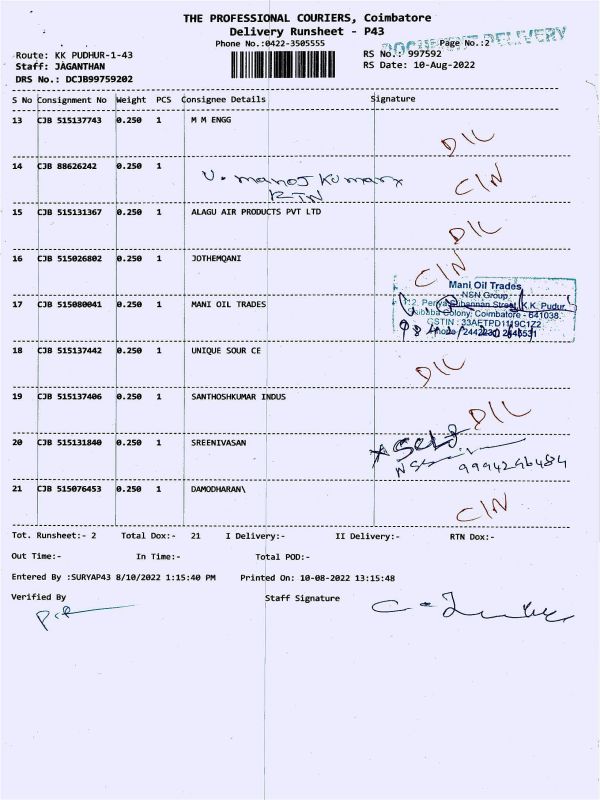 THE PROFESSIONAL COURIERS, Coimbatore
Delivery Runsheet - P43
Phone No.:0422-3505555
Page No.:2
DOCUMENT DELIVERY
Route: KK PUDHUR-1-43
RS No.: 997592
Staff: JAGANTHAN
RS Date: 10-Aug-2022
DRS No.: DCJB99759202
S No Consignment No Weight PCS Consignee Details Signature
13 CJB 515137743 0.250 1 M M ENGG
D/L
14 CJB 88626242 0.250 1
C/N
U. manoj kumar
RTN
15 CJB 515131367 0.250 1 ALAGU AIR PRODUCTS PVT LTD
D/L
16 CJB 515026802 0.250 1 JOTHEMQANI
C/N
Mani Oil Trades
NSN Group
K.K. Pudur,
17 CJB 515080041 0.250 1 MANI OIL TRADES
Colony, Coimbatore - 641038.
GSTIN : 33AFTPD1119C1Z2
18 CJB 515137442 0.250 1 UNIQUE SOUR CE
D/L
19 CJB 515137406 0.250 1 SANTHOSHKUMAR INDUS
D/L
20 CJB 515131840 0.250 1 SREENIVASAN
Self
9994296484
21 CJB 515076453 0.250 1 DAMODHARAN\
C/N
Tot. Runsheet:- 2 Total Dox:- 21 I Delivery:- II Delivery:- RTN Dox:-
Out Time:- In Time:- Total POD:-
Entered By :SURYAP43 8/10/2022 1:15:40 PM Printed On: 10-08-2022 13:15:48
Verified By Staff Signature